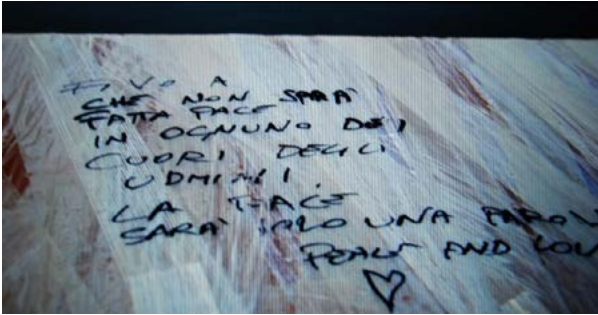 FINO A
CHE NON SARÀ
FATTA PACE
IN OGNUNO DEI
CUORI DEGLI
UOMINI.
LA PACE
SARÀ SOLO UNA PAROL
PEACE AND LOV